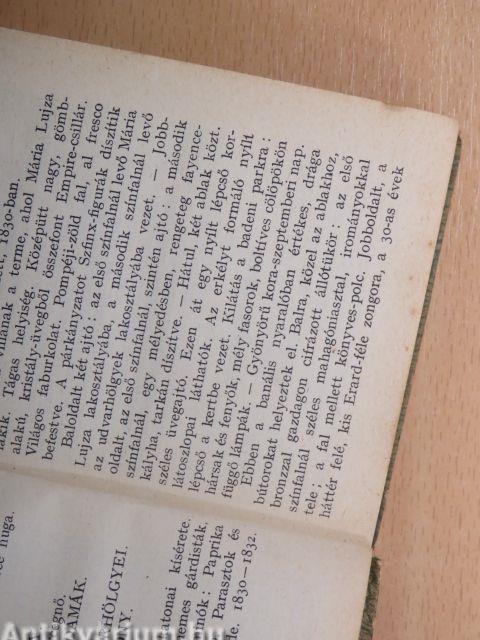 uce nuga.
égnő,
AMÁK.
HÖLGYEI.
NY.
atonai kísérete.
nemes gárdisták.
inók: Paprika
Parasztok és
de. 1830—1832.
lakik. villának a terme, ahol Mária Lujza
ett, 1830-ban.
Tágas helyiség. Középütt nagy, gömb-
alakú, kristály-üvegből összefont Empire-csillár.
Világos faburkolat. Pompéji-zöld fal, al fresco
befestve. A párkányzatot Szfinx-figurák díszítik
Baloldalt két ajtó: az első színfalnál levő Mária
Lujza lakosztályába, a második színfalnál levő
az udvarhölgyek lakosztályába vezet. — Jobb-
oldalt, az első színfalnál, szintén ajtó; a második
színfalnál, egy mélyedésben, rengeteg fayence-
kályha, tarkán díszítve. — Hátul, két ablak közt.
széles üvegajtó, Ezen át egy nyílt lépcső kor-
látoszlopai láthatók. Az erkélyt formáló nyílt
lépcső a kertbe vezet. Kilátás a badeni parkra:
hársak és fenyők, mély fasorok, boltíves cölöpökön
függő lámpák. — Gyönyörű kora-szeptemberi nap.
Ebben a banális nyaralóban értékes, drága
bútorokat helyeztek el. Balra, közel az ablakhoz,
bronzzal gazdagon cifrázott állótükör; az első
színfalnál széles mahagóniasztal, irományokkal
tele; a fal mellett könyves-polc. Jobboldalt, a
háttér felé, kis Erard-féle zongora, a 30-as évek
Antikvarium.hu